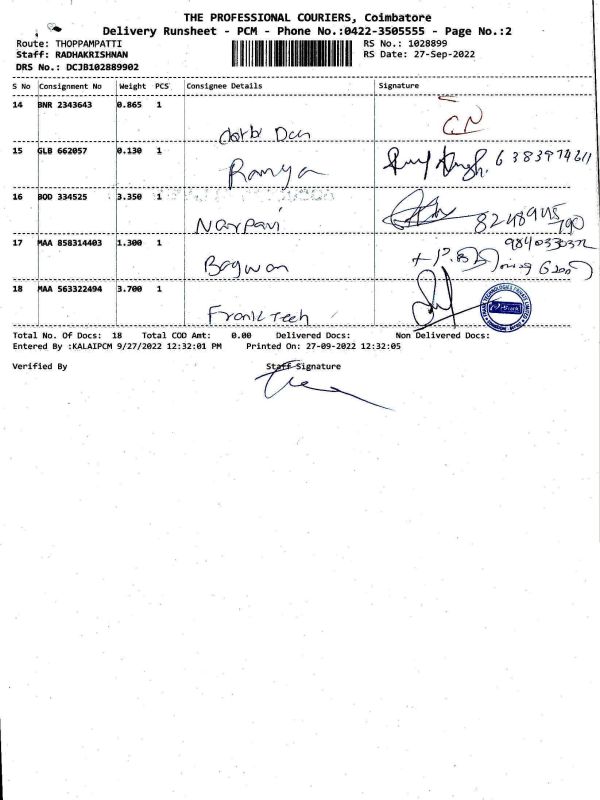 THE PROFESSIONAL COURIERS, Coimbatore
Delivery Runsheet - PCM - Phone No.:0422-3505555 - Page No.:2
Route: THOPPAMPATTI RS No.: 1028899
Staff: RADHAKRISHNAN RS Date: 27-Sep-2022
DRS No.: DCJB102889902
S No Consignment No Weight PCS Consignee Details Signature
14 BNR 2343643 0.865 1
15 GLB 662057 0.130 1
Ramya 6383974611
16 BOD 334525 3.350 1
Narpavi 8248945790
17 MAA 858314403 1.300 1 9840330372
Bagwan
18 MAA 563322494 3.700 1
Fronk Tech
Total No. Of Docs: 18 Total COD Amt: 0.00 Delivered Docs: Non Delivered Docs:
Entered By :KALAIPCM 9/27/2022 12:32:01 PM Printed On: 27-09-2022 12:32:05
Verified By Staff Signature